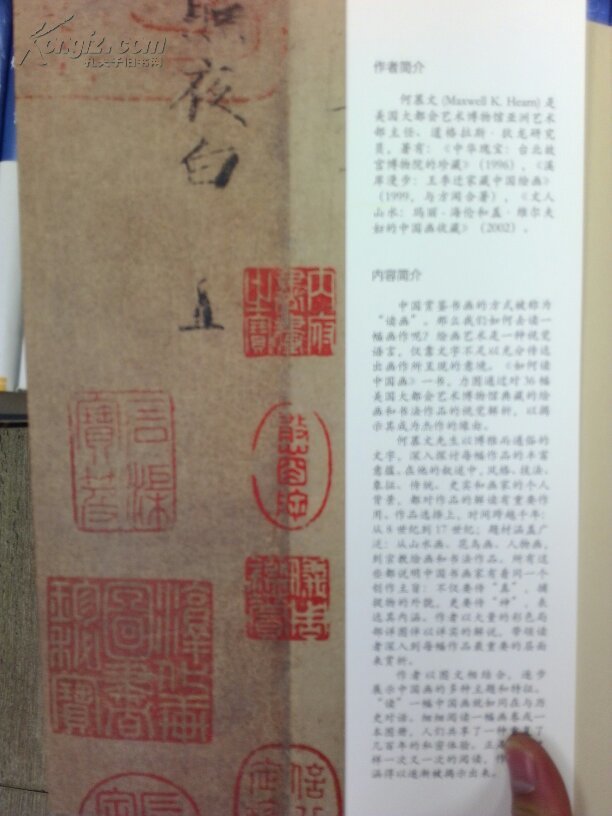 Kongfz.com
孔夫子旧书网
照夜白
上
内府书画之宝
作者简介
何慕文 (Maxwell K. Hearn) 是
美国大都会艺术博物馆亚洲艺术
部主任、道格拉斯·狄龙研究
员。著有：《中华瑰宝：台北故
宫博物院的珍藏》（1996）、《溪
岸漫步：王季迁家藏中国绘画》
（1999，与方闻合著）、《文人
山水：玛丽-海伦和盖·维尔夫
妇的中国画收藏》（2002）。
内容简介
中国赏鉴书画的方式被称为
“读画”。那么我们如何去读一
幅画作呢？绘画艺术是一种视觉
语言，仅靠文字不足以充分传达
出画作所呈现的意境。《如何读
中国画》一书，力图通过对36幅
美国大都会艺术博物馆典藏的绘
画和书法作品的视觉解析，以揭
示其成为杰作的缘由。
何慕文先生以博雅而通俗的
文字，深入探讨每幅作品的丰富
意蕴。在他的叙述中，风格、技法、
象征、传统、史实和画家的个人
背景，都对作品的解读有重要作
用。作品选择上，时间跨越千年：
从8世纪到17世纪；题材涵盖广
泛：从山水画、花鸟画、人物画，
到宗教绘画和书法作品。所有这
些都说明中国书画家有着同一个
创作主旨：不仅要传“真”，捕
捉物的外貌，更要传“神”，表
达其内涵。作者以大量的彩色局
部详图伴以详实的解说，带领读
者深入到每幅作品最重要的层面
来赏析。
作者以图文相结合，逐步
展示中国画的多种主题和特征。
“读”一幅中国画就如同在与历史
对话。细细阅读一幅画卷或一
本图册，人们共享了一种
几百年的私密体验。正
样一次又一次的阅读，作
涵得以逐渐被揭示出来。